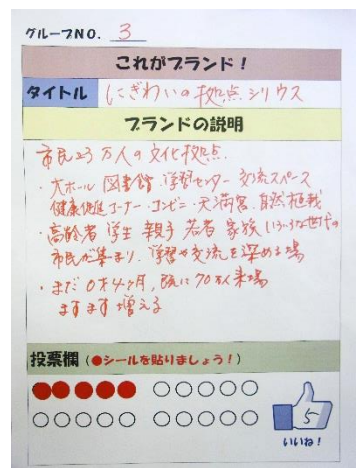 グループNO. 3
これがブランド！
タイトル にぎわいの拠点シリウス
ブランドの説明
市民23万人の文化拠点
・大ホール 図書館 学習センター 交流スペース
健康促進コーナー・コンビニ・天満宮・自然植栽
・高齢者 学生 親子 若者 家族 いろいろな世代の
市民が集まり、学習や交流を深める場
・まだ0才4ヶ月、既に70万人来場
ますます増える
投票欄（●シールを貼りましょう！）
5
いいね！